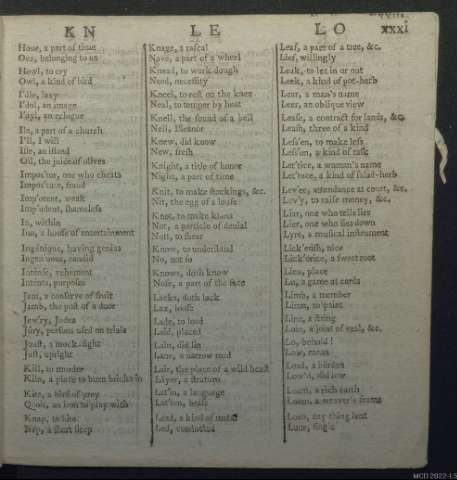 K N
L E
L O
xxxi
Hour, a part of time
Our, belonging to us
Howl, to cry
Owl, a kind of bird
I'dle, lazy
I'dol, an image
I'dyl, an eclogue
Ile, a part of a church
I'll, I will
Isle, an island
Oil, the juice of olives
Impos'tor, one who cheats
Impos'ture, fraud
Imp'otent, weak
Imp'udent, shameless
In, within
Inn, a house of entertainment
Ingénious, having genius
Ingenuous, candid
Inténse, vehement
Intents, purposes
Jam, a conserve of fruit
Jamb, the post of a door
Jew'ry, Judea
Júry, persons used on trials
Joust, a mock-fight
Just, upright
Kill, to murder
Kiln, a place to burn bricks in
Kite, a bird of prey
Quoit, an iron to play with
Knap, to bite
Nap, a short sleep
Knave, a rascal
Nave, a part of a wheel
Knead, to work dough
Need, necessity
Kneel, to rest on the knee
Neal, to temper by heat
Knell, the sound of a bell
Nell, Eleanor
Knew, did know
New, fresh
Knight, a title of honor
Night, a part of time
Knit, to make stockings, &c.
Nit, the egg of a louse
Knot, to make knots
Not, a particle of denial
Nott, to shear
Know, to understand
No, not so
Knows, doth know
Nose, a part of the face
Lacks, doth lack
Lax, loose
Lade, to load
Laid, placed
Lain, did lie
Lane, a narrow road
Lair, the place of a wild beast
Láyer, a stratum
Lat'in, a language
Lat'ten, brass
Lead, a kind of metal
Led, conducted
Leaf, a part of a tree, &c.
Lief, willingly
Leak, to let in or out
Leek, a kind of pot-herb
Lear, a man's name
Leer, an oblique view
Lease, a contract for lands, &c.
Leash, three of a kind
Less'en, to make less
Less'on, a kind of task
Let'tice, a woman's name
Let'tuce, a kind of salad-herb
Lev'ee, attendance at court, &c.
Lev'y, to raise money, &c.
Liar, one who tells lies
Lier, one who lies down
Lyre, a musical instrument
Lick'erish, nice
Lick'orice, a sweet root
Lieu, place
Lu, a game at cards
Limb, a member
Limn, to paint
Line, a string
Loin, a joint of veal, &c.
Lo, behold!
Low, mean
Load, a burden
Low'd, did low
Loam, a rich earth
Loom, a weaver's frame
Loan, any thing lent
Lone, single
MCD 2022-L5